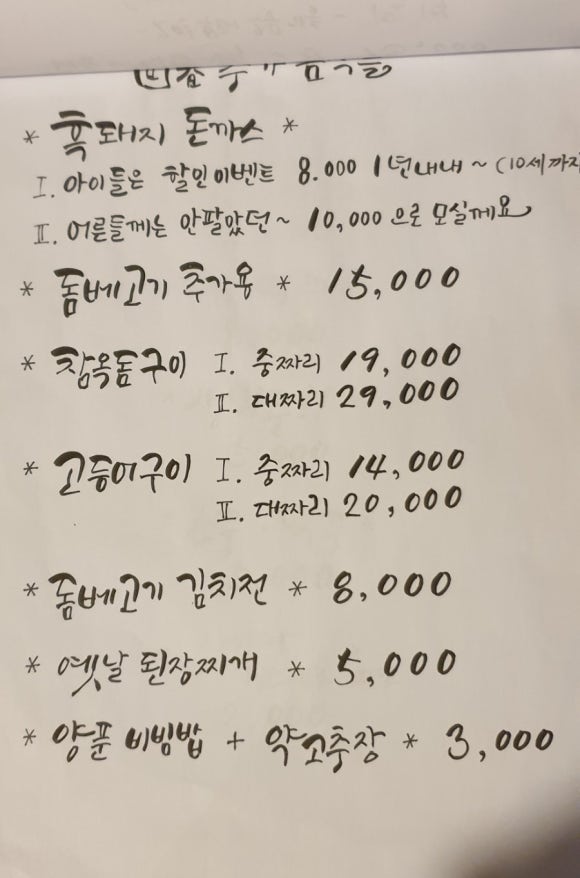 * 흑돼지 돈까스 *
I. 아이들은 할인이벤트 8.000 1년내내 ~ (10세까지
II. 어른들께는 안팔았던 ~ 10,000 으로 모실께요
* 돔베고기 추가용 * 15,000
* 참옥돔구이 I. 중짜리 19,000
II. 대짜리 29,000
* 고등어구이 I. 중짜리 14,000
II. 대짜리 20,000
* 돔베고기 김치전 * 8,000
* 옛날 된장찌개 * 5,000
* 양푼 비빔밥 + 약고추장 * 3,000